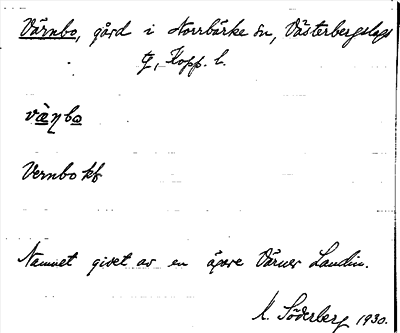 Värnbo, gård i Norrbärke sn, Västerbergslags
tg, Kopp. l.
vạ̈ṇbo
Vernbo kb
Namnet givet av en ägare Värner Landin.
K. Söderberg 1930.